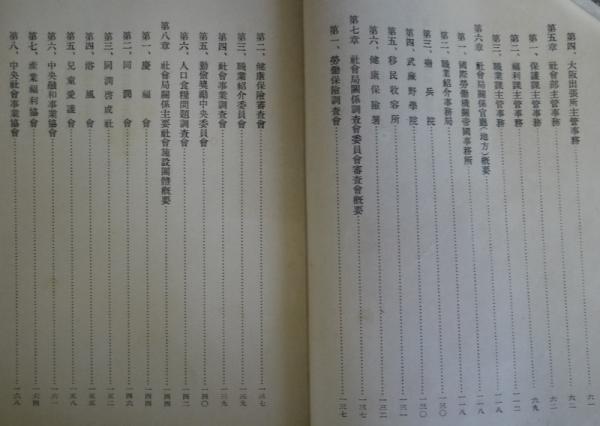 第四、大阪出張所主管事務……六一
第五章 社會部主管事務……六二
第一、保護課主管事務……六二
第二、福利課主管事務……九九
第三、職業課主管事務……一一二
第六章 社會局關係官廳(地方)概要……一一八
第一、國際勞働機關帝國事務所……一一八
第二、職業紹介事務局……一三〇
第三、癈兵院……一三〇
第四、武藏野學院……一三一
第五、移民收容所……一三二
第六、健康保險署……一三七
第七章 社會局關係調査會委員會審査會概要……一三七
第一、勞働保險調査會……一三七
第二、健康保險審査會……一三七
第三、職業紹介委員會……一三九
第四、社會事業調査會……一三九
第五、勤儉奬勵中央委員會……一四〇
第六、人口食糧問題調査會……一四二
第八章 社會局關係主要社會施設團體概要……一四四
第一、慶福會……一四四
第二、同潤會……一四六
第三、同潤啓成社……一五二
第四、浴風會……一五五
第五、兒童愛護會……一五八
第六、中央融和事業協會……一六一
第七、產業福利協會……一六四
第八、中央社會事業協會……一六八